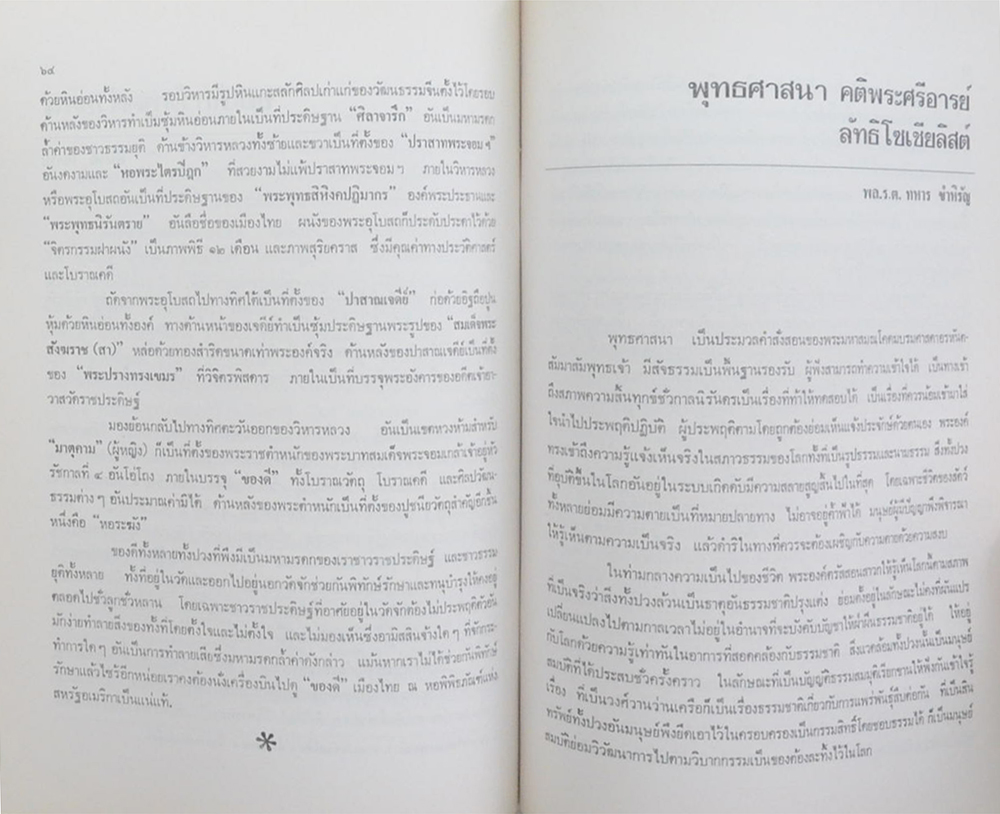 ๖๔
ด้วยหินอ่อนทั้งหลัง รอบวิหารมีรูปหินแกะสลักศิลปเก่าแก่ของวัฒนธรรมจีนตั้งไว้โดยรอบ
ด้านหลังของวิหารทำเป็มซุ้มหินอ่อนภายในเป็นที่ประดิษฐาน “ศิลาจารึก” อันเป็นมหามรดก
ล้ำค่าของชาวธรรมยุติ ด้านข้างวิหารหลวงทั้งซ้ายและขวาเป็นที่ตั้งของ “ปราสาทพระจอม ๆ”
อันงดงามและ “หอพระไตรปิฎก” ที่สวยงามไม่แพ้ปราสาทพระจอม ๆ ภายในวิหารหลวง
หรือพระอุโบสถอันเป็นที่ประดิษฐานของ “พระพุทธสิหิงคปฏิมากร” องค์พระประธานและ
“พระพุทธนิรันตราย” อันลือชื่อของเมืองไทย ผนังของพระอุโบสถก็ประดับประดาไว้ด้วย
“จิตรกรรมฝาผนัง” เป็นภาพพิธี ๑๒ เดือน และภาพสุริยคราส ซึ่งมีคุณค่าทางประวัติศาสตร์
และโบราณคดี
ถัดจากพระอุโบสถไปทางทิศใต้เป็นที่ตั้งของ “ปาสาณเจดีย์” ก่อด้วยอิฐถือปูน
หุ้มด้วยหินอ่อนทั้งองค์ ทางด้านหน้าของเจดีย์ทำเป็นซุ้มประดิษฐานพระรูปของ “สมเด็จพระ
สังฆราช (สา)” หล่อด้วยทองสำริดขนาดเท่าพระองค์จริง ด้านหลังของปาสาณเจดีย์เป็นที่ตั้ง
ของ “พระปรางทรงเขมร” ที่วิจิตรพิสดาร ภายในเป็นที่บรรจุพระอังคารของอดีตเจ้าอา-
วาสวัดราชประดิษฐ์
มองย้อนกลับไปทางทิศตะวันออกของวิหารหลวง อันเป็นเขตหวงห้ามสำหรับ
“มาตุคาม” (ผู้หญิง) ก็เป็นที่ตั้งของพระราชตำหนักของพระบาทสมเด็จพระจอมเกล้าเจ้าอยู่หัว
รัชกาลที่ ๔ อันโอ่โถง ภายในบรรจุ “ของดี” ทั้งโบราณวัตถุ โบราณคดี และศิลปวัฒน-
ธรรมต่างๆ อันประมาณค่ามิได้ ด้านหลังของพระตำหนักเป็นที่ตั้งของปูชนียวัตถุสำคัญอีกชิ้น
หนึ่งคือ “หอระฆัง”
ของดีทั้งหลายทั้งปวงที่พึงมีเป็นมหามรดกของเราชาวราชประดิษฐ์ และชาวธรรม
ยุติทั้งหลาย ทั้งที่อยู่ในวัดและออกไปอยู่นอกวัดจักช่วยกันพิทักษ์รักษาและทนุบำรุงให้คงอยู่
ตลอดไปชั่วลูกชั่วหลาน โดยเฉพาะชาวราชประดิษฐ์ที่อาศัยอยู่ในวัดจักต้องไม่ประพฤติตัวอัน
มักง่ายทำลายสิ่งของทั้งที่โดยตั้งใจและไม่ตั้งใจ และไม่มองเห็นซึ่งอามิสสินจ้างใด ๆ ที่จักกระ-
ทำการใดๆ อันเป็นการทำลายเสียซึ่งมหามรดกล้ำค่าดังกล่าว แม้นหากเราไม่ได้ช่วยกันพิทักษ์
รักษาแล้วไซร้อีกหน่อยเราคงต้องนั่งเครื่องบินไปดู “ของดี” เมืองไทย ณ หอพิพิธภัณฑ์แห่ง
สหรัฐอเมริกาเป็นแน่แท้.
พุทธศาสนา คติพระศรีอารย์
ลัทธิโซเชียลิสต์
พล.ร.ต. ทหาร ขำหิรัญ
พุทธศาสนา เป็นประมวลคำสั่งสอนของพระมหาสมณโคดมบรมศาสดาอรหันต-
สัมมาสัมพุทธเจ้า มีสัจธรรมเป็นพื้นฐานรองรับ ผู้พึงสามารถทำความเข้าใจได้ เป็นทางเข้า
ถึงสภาพความสิ้นทุกข์ชั่วกาลนิรันดรเป็นเรื่องที่ท้าให้ทดสอบได้ เป็นเรื่องที่ควรน้อมเข้ามาใส่
ใจนำไปประพฤติปฏิบัติ ผู้ประพฤติตามโดยถูกต้องย่อมเห็นแจ้งประจักษ์ด้วยตนเอง พระองค์
ทรงเข้าถึงความรู้แจ้งเห็นจริงในสภาวธรรมของโลกทั้งที่เป็นรูปธรรมและนามธรรม สิ่งทั้งปวง
ที่อุบัติขึ้นในโลกอันอยู่ในระบบเกิดดับมีความสลายสูญสิ้นไปในที่สุด โดยเฉพาะชีวิตของสัตว์
ทั้งหลายย่อมมีความตายเป็นที่หมายปลายทาง ไม่อาจอยู่ค้ำฟ้าได้ มนุษย์ผู้มีปัญญาพึงพิจารณา
ให้รู้เห็นตามความเป็นจริง แล้วดำริในทางที่ควรจะต้องเผชิญกับความตายด้วยความสงบ
ในท่ามกลางความเป็นไปของชีวิต พระองค์ตรัสสอนสาวกให้รู้เห็นโลกนี้ตามสภาพ
ที่เป็นจริงว่าสิ่งทั้งปวงล้วนเป็นธาตุอันธรรมชาติปรุงแต่ง ย่อมตั้งอยู่ในลักษณะไม่คงที่ผันแปร
เปลี่ยนแปลงไปตามกาลเวลาไม่อยู่ในอำนาจที่จะบังคับบัญชาให้ฝ่าฝืนธรรมชาติอยู่ได้ ให้อยู่
กับโลกด้วยความรู้เท่าทันในอาการที่สอดคล้องกับธรรมชาติ สิ่งแวดล้อมทั้งปวงนั้นเป็นมนุษย์
สมบัติที่ได้ประสบชั่วครั้งคราว ในลักษณะที่เป็นบัญญัติธรรมสมมุติเรียกขานให้พึงกันเข้าใจรู้
เรื่อง ที่เป็นวงศ์วานว่านเครือก็เป็นเรื่องธรรมชาติเกี่ยวกับการแพร่พันธุ์สืบต่อกัน ที่เป็นสิน
ทรัพย์ทั้งปวงอันมนุษย์พึงยึดเอาไว้ในครอบครองเป็นกรรมสิทธิ์โดยชอบธรรมได้ ก็เป็นมนุษย์
สมบัติย่อมวิวัฒนาการไปตามวิบากกรรมเป็นของต้องละทิ้งไว้ในโลก